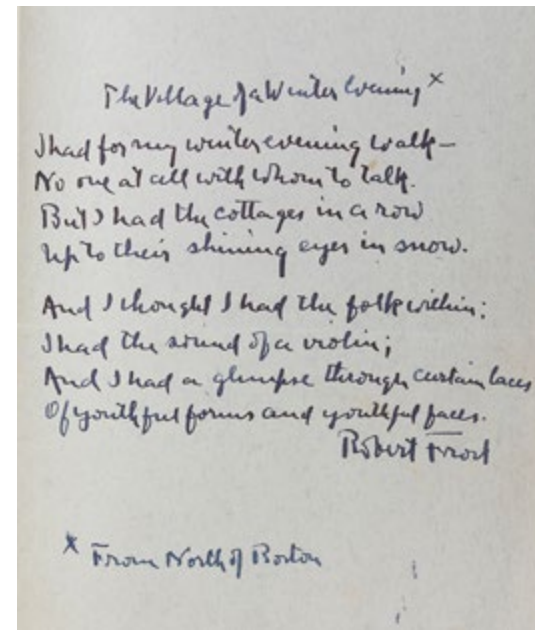 The Village of a Winter Evening x
I had for my winter evening walk—
No one at all with whom to talk.
But I had the cottages in a row
Up to their shining eyes in snow.
And I thought I had the folk within;
I had the sound of a violin;
And I had a glimpse through curtain laces
Of youthful forms and youthful faces.
Robert Frost
x From North of Boston